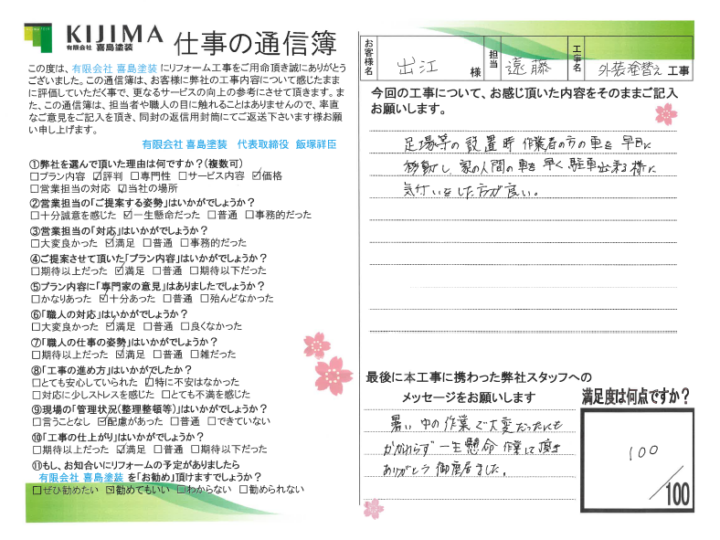 KIJIMA
有限会社 喜島塗装
仕事の通信簿
この度は、有限会社 喜島塗装 にリフォーム工事をご用命頂き誠にありがとう
ございました。この通信簿は、お客様に弊社の工事内容について感じたまま
に評価していただく事で、更なるサービスの向上の参考にさせて頂きます。ま
た、この通信簿は、担当者や職人の目に触れることはありませんので、率直
なご意見をご記入を頂き、同封の返信用封筒にてご返送下さいます様お願
い申し上げます。
有限会社 喜島塗装 代表取締役 飯塚祥臣
①弊社を選んで頂いた理由は何ですか?(複数可)
□プラン内容 ☑評判 □専門性 □サービス内容 ☑価格
□営業担当の対応 ☑当社の場所
②営業担当の「ご提案する姿勢」はいかがでしょうか?
□十分誠意を感じた ☑一生懸命だった □普通 □事務的だった
③営業担当の「対応」はいかがでしょうか?
□大変良かった ☑満足 □普通 □事務的だった
④ご提案させて頂いた「プラン内容」はいかがでしょうか?
□期待以上だった ☑満足 □普通 □期待以下だった
⑤プラン内容に「専門家の意見」はありましたでしょうか?
□かなりあった ☑十分あった □普通 □殆んどなかった
⑥「職人の対応」はいかがでしょうか?
□大変良かった ☑満足 □普通 □良くなかった
⑦「職人の仕事の姿勢」はいかがでしたか?
□期待以上だった ☑満足 □普通 □雑だった
⑧「工事の進め方」はいかがでしたか?
□とても安心していられた ☑特に不安はなかった
□対応に少しストレスを感じた □とても不満を感じた
⑨現場の「管理状況(整理整頓等)」はいかがでしょうか?
□言うことなし ☑配慮があった □普通 □できていない
⑩「工事の仕上がり」はいかがでしょうか?
□期待以上だった ☑満足 □普通 □期待以下だった
⑪もし、お知合いにリフォームの予定がありましたら
有限会社 喜島塗装 を「お勧め」頂けますでしょうか?
□ぜひ勧めたい ☑勧めてもいい □わからない □勧められない
お客様名 出江 様 担当 遠藤 工事名 外装塗替え 工事
今回の工事について、お感じ頂いた内容をそのままご記入
お願いします。
足場等の設置時 作業者の方の車を 早目に
移動し、家の人間の車を 早く 駐車出来る様に
気付いをした方が良い。
最後に本工事に携わった弊社スタッフへの
メッセージをお願いします
暑い中の作業で大変だったにも
かかわらず 一生懸命 作業して頂き
ありがとう御座居ました。
満足度は何点ですか?
100
/100